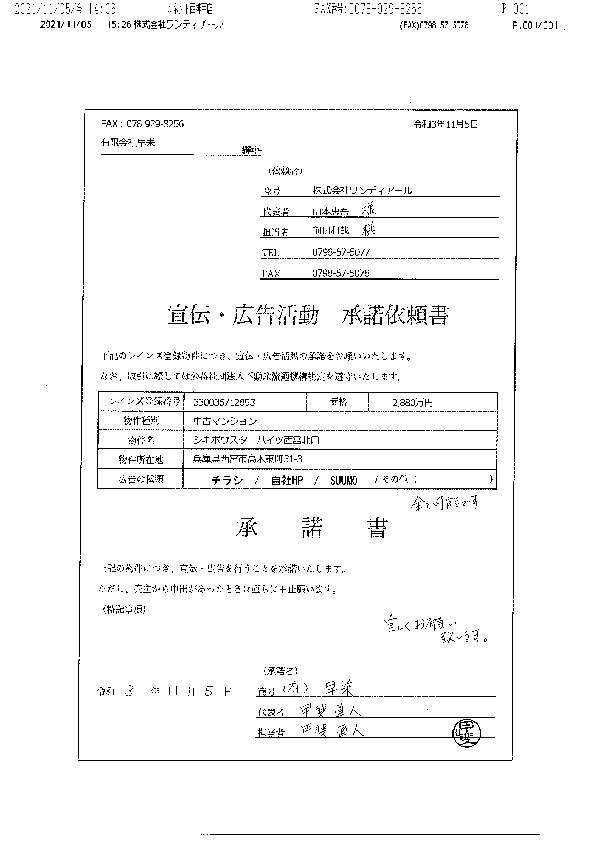 2021/11/05 15:26 株式会社ワンディアール (FAX)0798 57 5078 P.001/001
FAX：078-929-8256 令和3年11月5日
有限会社早業 御中
（依頼者）
商号 株式会社ワンディアール
代表者 様
担当者 様
TEL 0798-57-5077
FAX 0798-57-5078
宣伝・広告活動 承諾依頼書
下記のレインズ登録物件につき、宣伝・広告活動の承諾をお願いいたします。
なお、取引に際しては公益社団法人不動産流通機構規定を遵守いたします。
レインズ登録番号 価格 2,880万円
物件種別 中古マンション
物件名 シキボウスターハイツ西宮北口
物件所在地 兵庫県西宮市高木東町31-3
広告の種類 チラシ / 自社HP / SUUMO / その他（ ）
全て可能です
承 諾 書
上記の物件につき、宣伝・広告を行うことを承諾いたします。
ただし、売主から申出があったときは直ちに中止願います。
（特記事項）
宜しくお願い
致します。
（承諾者）
令和 3 年 11 月 5 日 商号 (有)
代表者 甲斐 直人
担当者 甲斐 直人
甲斐